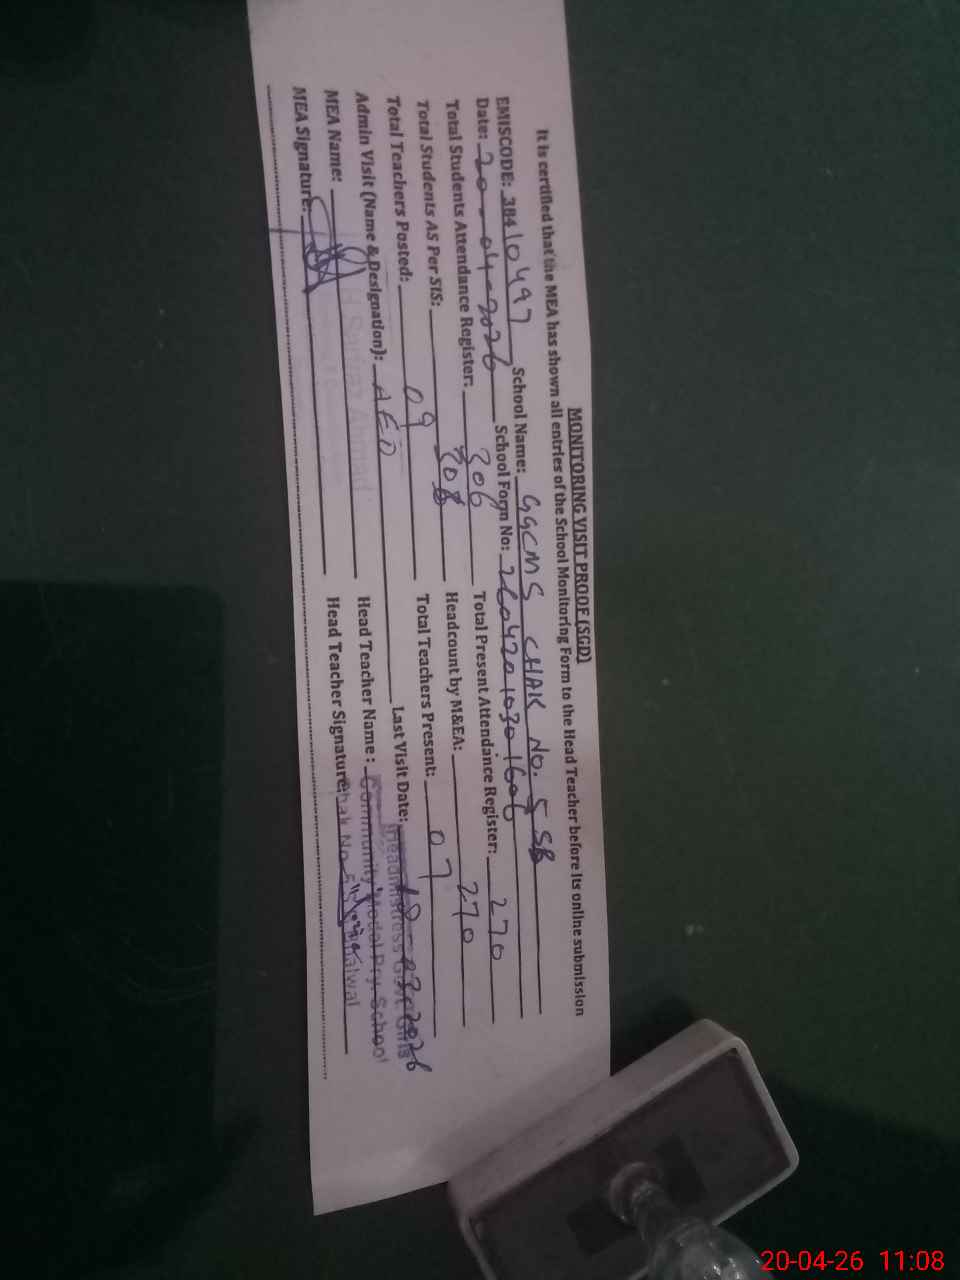 MONITORING VISIT PROOF (SGD)
It is certified that the MEA has shown all entries of the School Monitoring Form to the Head Teacher before its online submission
EMISCODE: 38410497 School Name: GGCMS CHAK NO. 5 SB
Date: 20-04-2026 School Form No: 26042010301606
Total Students Attendance Register: 306 Total Present Attendance Register: 270
Total Students AS Per SIS: 308 Headcount by M&EA: 270
Total Teachers Posted: 09 Total Teachers Present: 07
Admin Visit (Name & Designation): AEO Last Visit Date: 2026
MEA Name: Head Teacher Name:
MEA Signature: Head Teacher Signature:
Headmistress Govt. Girls
Community Model Pry. School
Chak No. 5
20-04-26 11:08